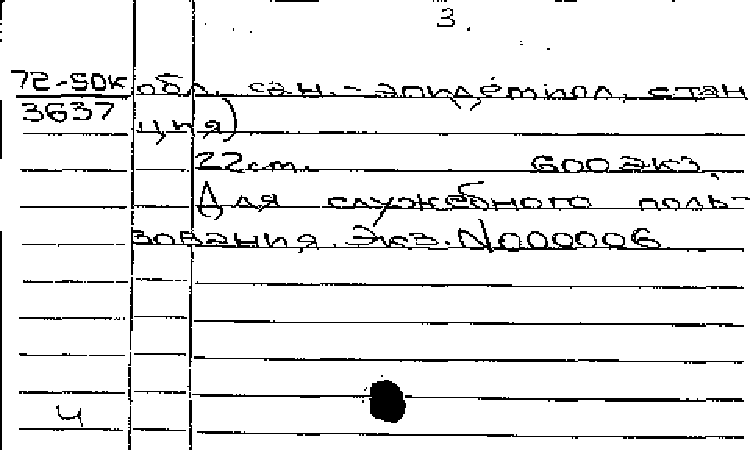 3.
72-5DK обл. сан.-эпидемиол. стан
3637
ция)
22 cm. 600 экз.
Для служебного поль-
зования. Экз. N000006
4